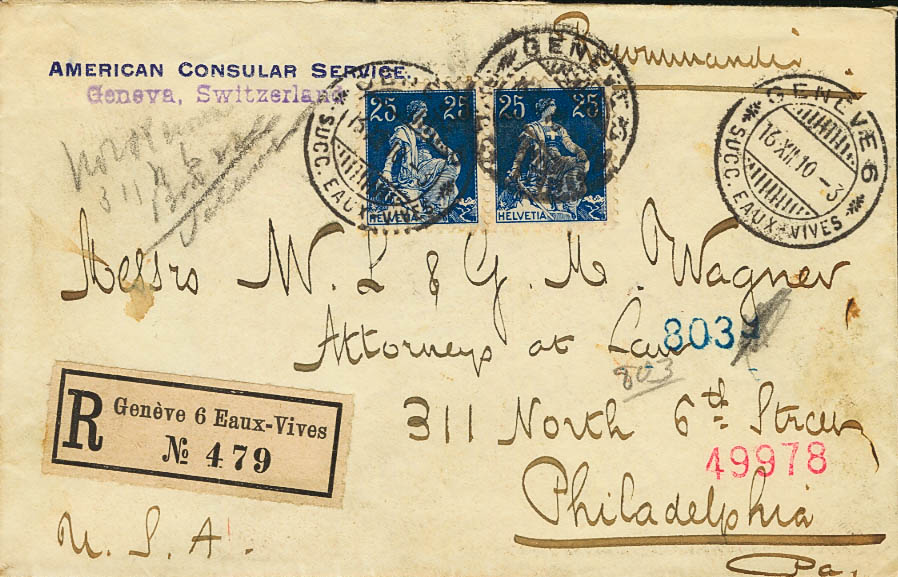 Recommandée
AMERICAN CONSULAR SERVICE,
Geneva, Switzerland
25 25
HELVETIA
25 25
HELVETIA
GENÈVE
SUCC. EAUX-VIVES
GENÈVE
GENÈVE 6
16.XII.10-3
SUCC. EAUX-VIVES
311 N 6
Messrs W. L & G. M. Wagner
Attorneys at Law
803
803
311 North 6th Street
49978
Philadelphia
Pa.
R Genève 6 Eaux-Vives
№ 479
U. S. A.